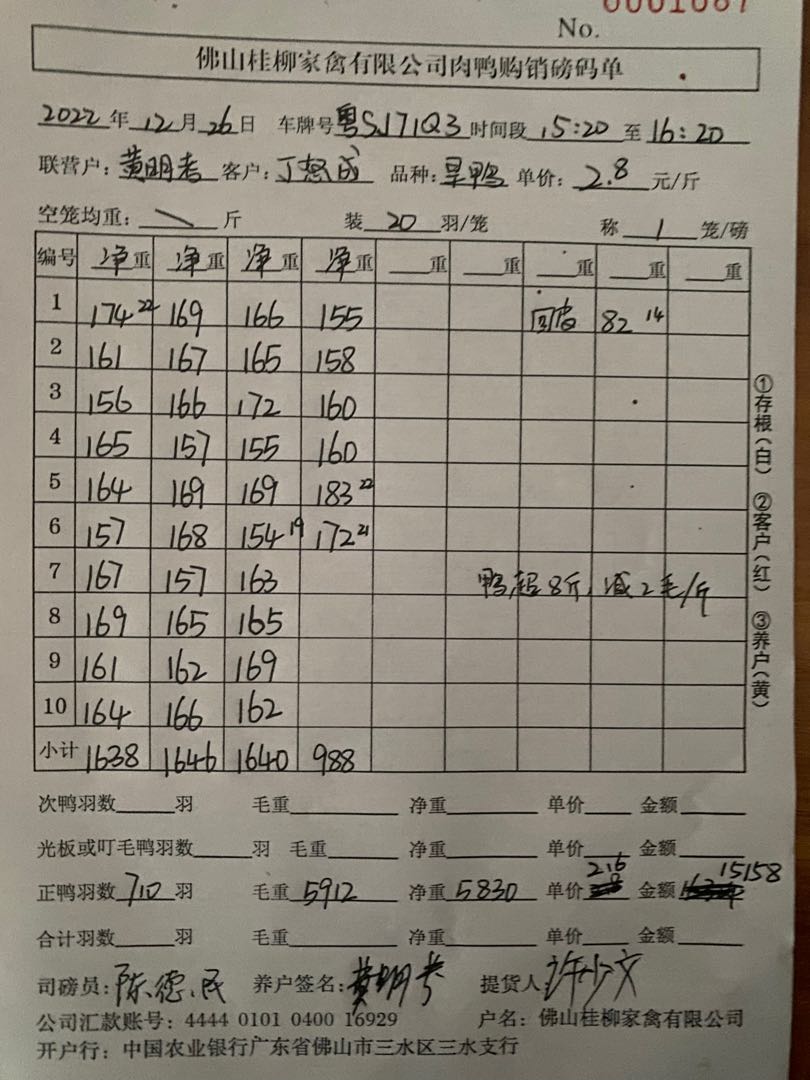 0001087
No.
佛山桂柳家禽有限公司肉鸭购销磅码单
2022年12月26日 车牌号粤SJ71Q3时间段15:20至16:20
联营户:黄明考 客户:丁怒成 品种:旱鸭 单价:2.8元/斤
空笼均重:\斤 装20羽/笼 称1笼/磅
编号 净重 净重 净重 净重 重 重 重 重 重
1 174 22 169 166 155 回皮 82 14
2 161 167 165 158
3 156 166 172 160
4 165 157 155 160
5 164 169 169 183 22
6 157 168 154 19 172 21
7 167 157 163 鸭超8斤,减2毛/斤
8 169 165 165
9 161 162 169
10 164 166 162
小计 1638 1646 1640 988
①存根(白) ②客户(红) ③养户(黄)
次鸭羽数 羽 毛重 净重 单价 金额
光板或叮毛鸭羽数 羽 毛重 净重 单价 金额
正鸭羽数710羽 毛重5912 净重5830 单价2.6 金额15158
合计羽数 羽 毛重 净重 单价 金额
司磅员:陈德民 养户签名:黄明考 提货人:许少文
公司汇款账号:4444 0101 0400 16929 户名:佛山桂柳家禽有限公司
开户行:中国农业银行广东省佛山市三水区三水支行